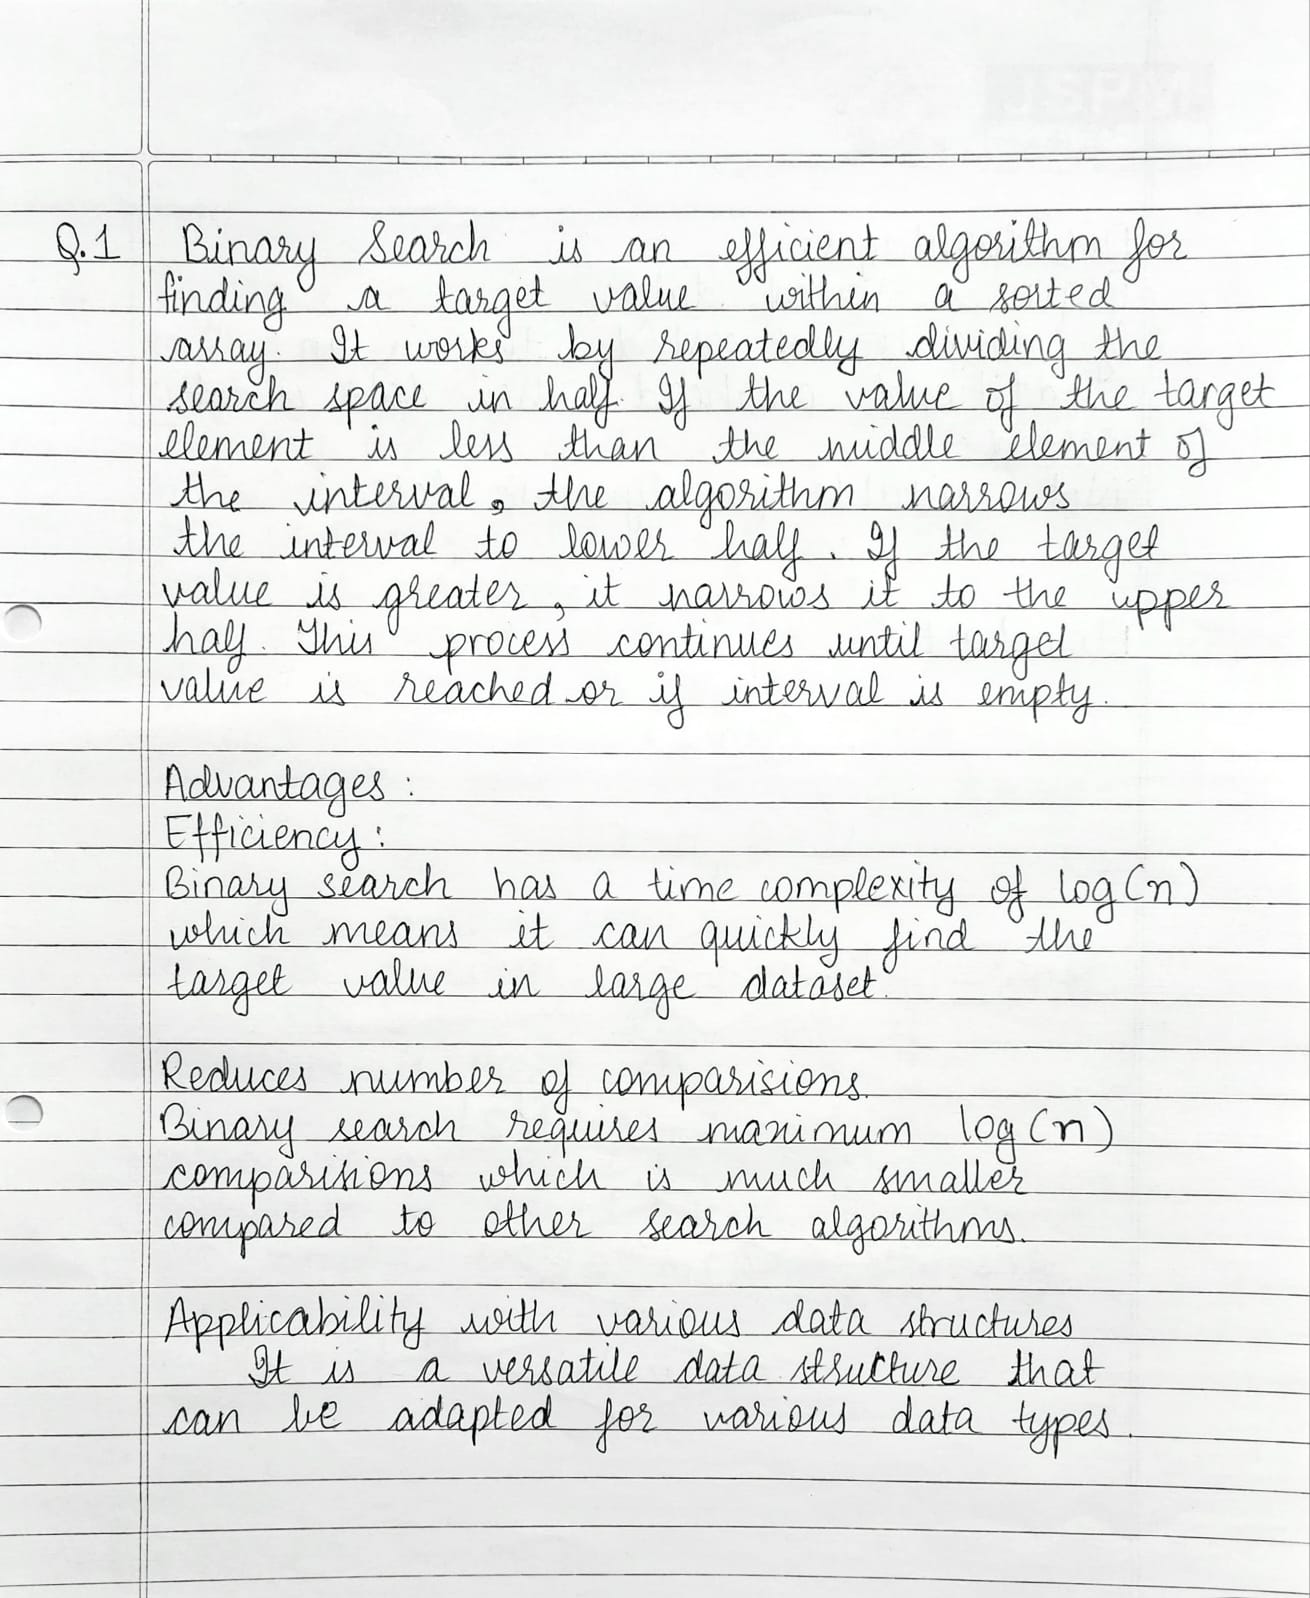 Q.1 Binary Search is an efficient algorithm for
finding a target value within a sorted
array. It works by repeatedly dividing the
search space in half. If the value of the target
element is less than the middle element of
the interval, the algorithm narrows
the interval to lower half. If the target
value is greater, it narrows it to the upper
half. This process continues until target
value is reached or if interval is empty.
Advantages :
Efficiency :
Binary search has a time complexity of log(n)
which means it can quickly find the
target value in large dataset.
Reduces number of comparisions.
Binary search requires maximum log(n)
comparisions which is much smaller
compared to other search algorithms.
Applicability with various data structures
It is a versatile data structure that
can be adapted for various data types.